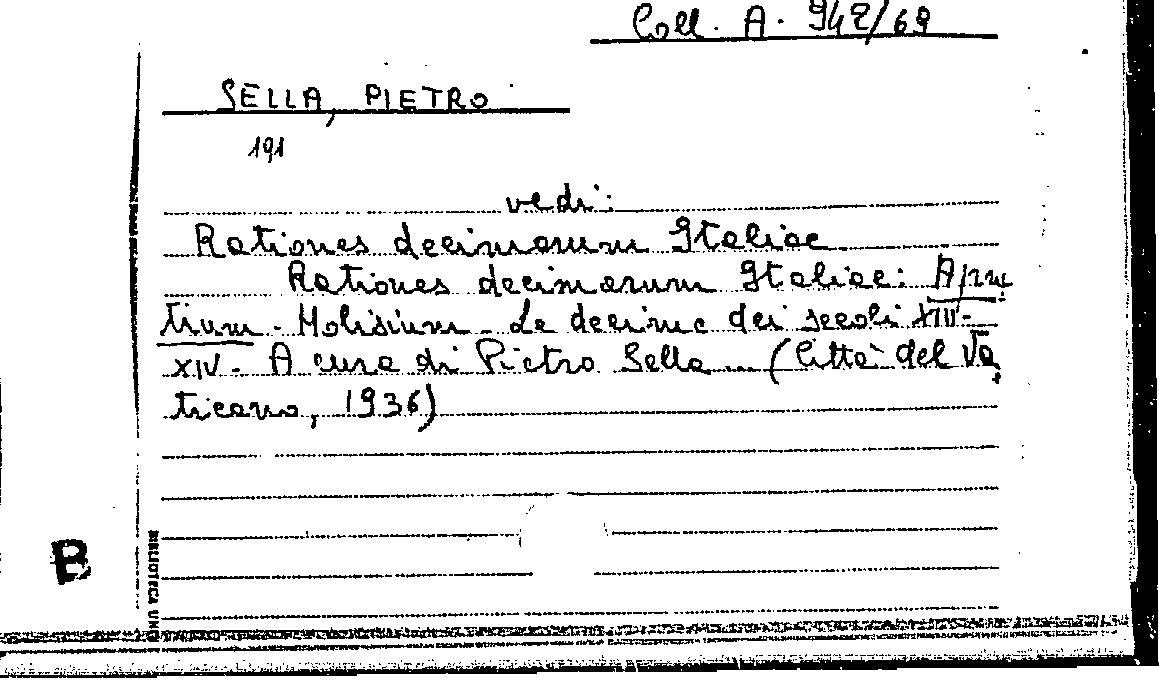 Coll. A. 942/69
SELLA, PIETRO
191
vedi:
Rationes decimarum Italiae
Rationes decimarum Italiae: Apru
tium - Molisium - Le decime dei secoli XIII-
XIV - A cura di Pietro Sella ... (Città del Va
ticano, 1936)
B
BIBLIOTECA UNI